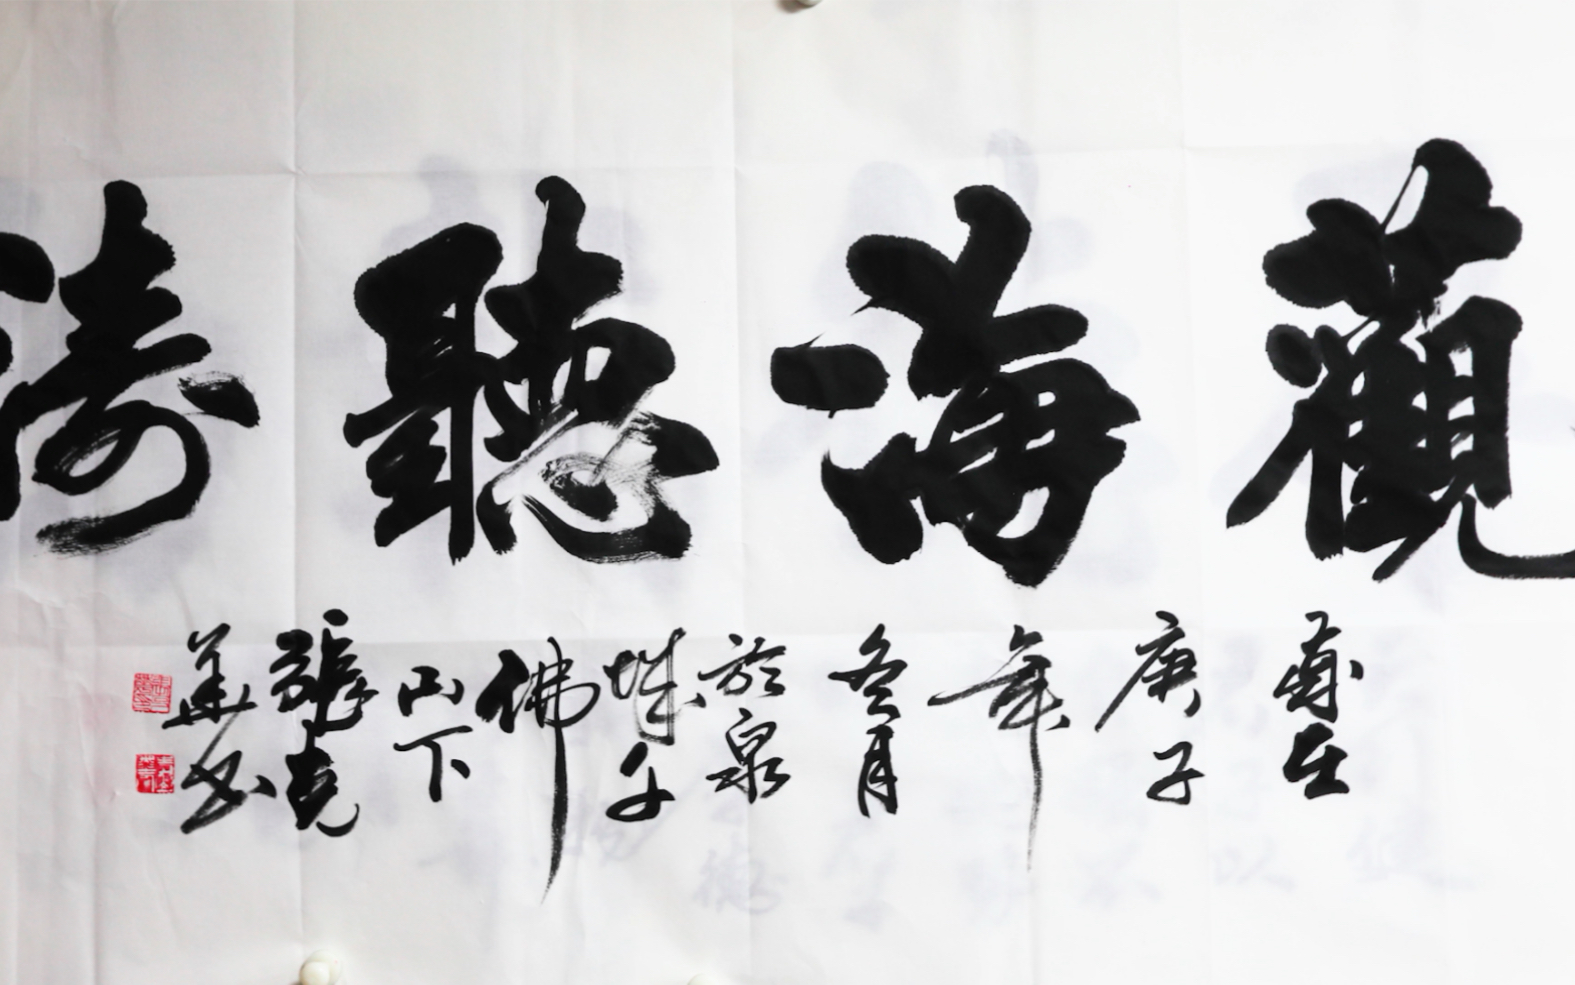 觀海聽濤
歲在
庚子
年
冬月
於泉
城千
佛
山下
張克
華書